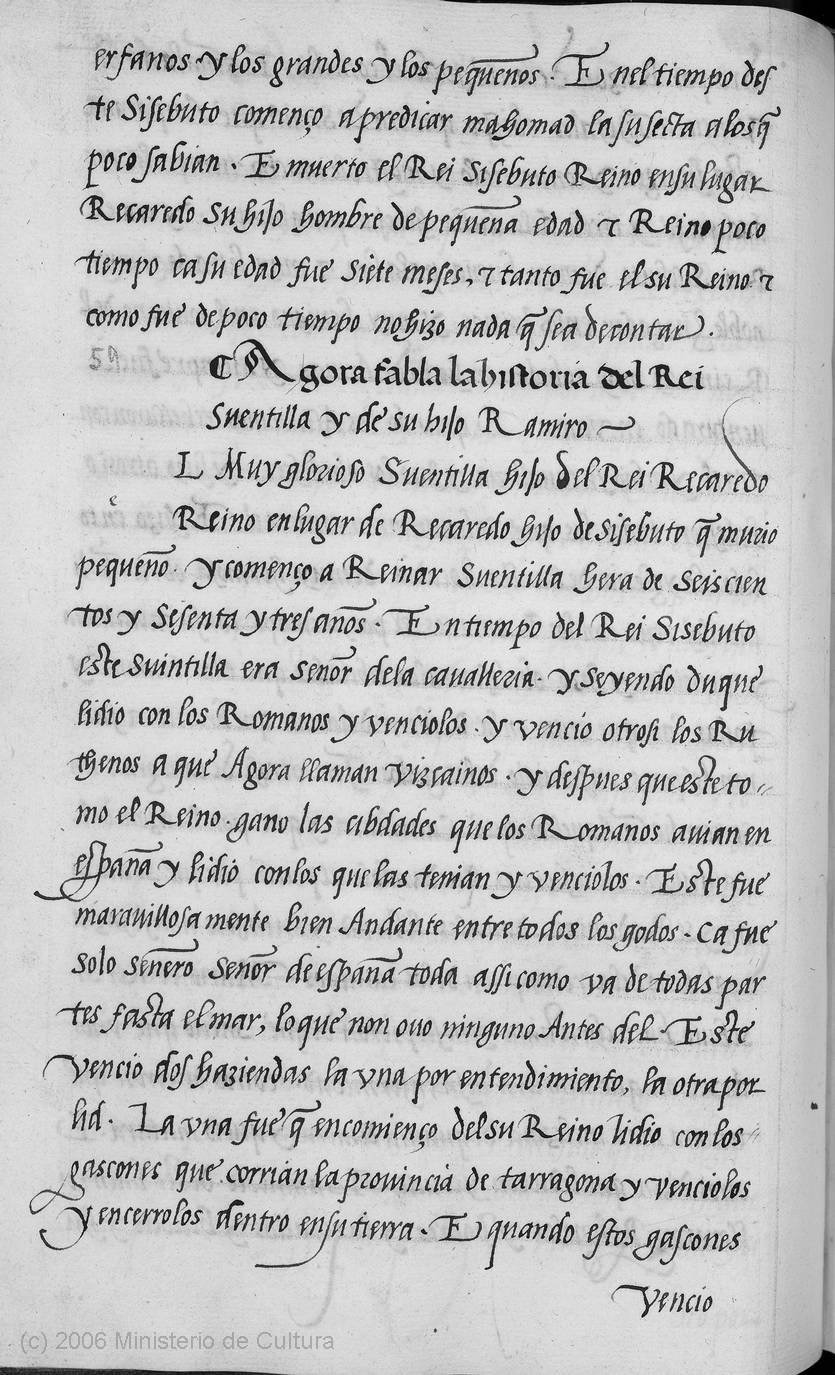 erfanos y los grandes y los pequeños. E nel tiempo des
te Sisebuto començo a predicar mahomad la su secta a los q̃
poco sabian. E muerto el Rei Sisebuto Reino en su lugar
Recaredo Su hijo hombre de pequeña edad ⁊ Reino poco
tiempo ca su edad fue Siete meses, ⁊ tanto fue el su Reino ⁊
como fue de poco tiempo no hizo nada q̃ sea de contar.
59
¶ Agora fabla la historia del Rei
Suentilla y de su hijo Ramiro
L Muy glorioso Suentilla hijo del Rei Recaredo
e
Reino en lugar de Recaredo hijo de Sisebuto q̃ murio
pequeño. y començo a Reinar Suentilla hera de seis cien
tos y Sesenta y tres años. En tiempo del Rei Sisebuto
este Suintilla era Señor de la cavalleria. y Seyendo duque
lidio con los Romanos y venciolos. y vencio otrosi los Ru
thenos a que Agora llaman Vizcainos. y despues que este to-
mo el Reino. gano las cibdades que los Romanos auian en
españa y lidio con los que las tenian y venciolos. Este fue
maravillosa mente bien Andante entre todos los godos. Ca fue
solo señero Señor de españa toda assi como va de todas par
tes fasta el mar, lo que non ouo ninguno Antes del. Este
Vencio dos haziendas la vna por entendimiento, la otra por
lid. La vna fue q̃ en comienço del su Reino lidio con los
gascones que corrian la provincia de tarragona y venciolos
y encerrolos dentro en su tierra. E quando estos gascones
Vencio
(c) 2006 Ministerio de Cultura